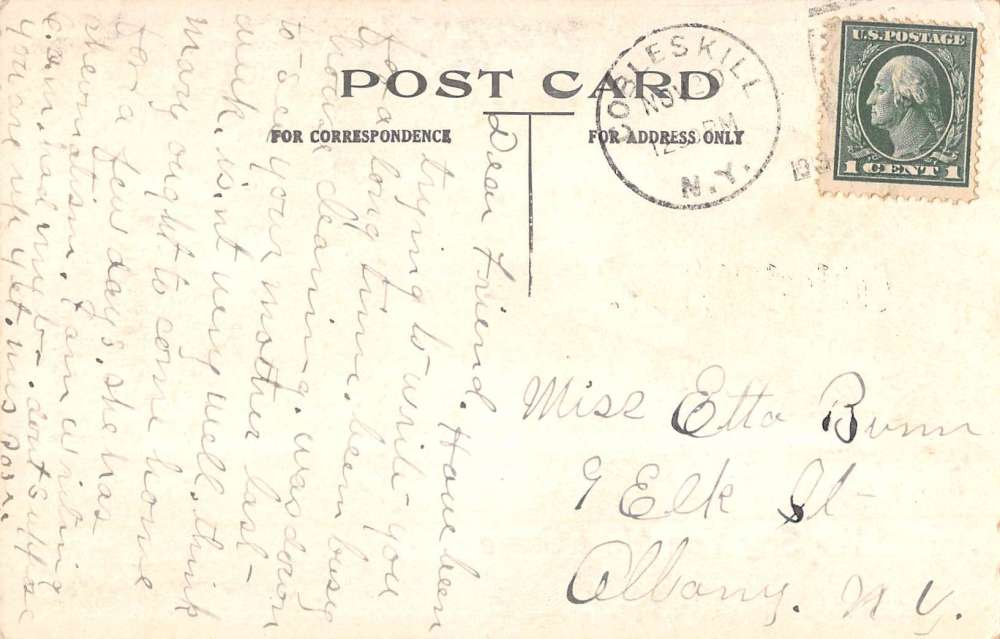 POST CARD
FOR CORRESPONDENCE
FOR ADDRESS ONLY
COBLESKILL
NOV
12 PM
N.Y.
U.S. POSTAGE
1 CENT 1
Dear Friend. Have been
trying to write you
for a long time. been busy
house cleaning. was down
to see your mother last
week. is.nt very well. think
Mary ought to come home
for a few days. she has
rheumatism. I am writing
dont suppose
you are up yet. Mrs
Miss Etta Bunn
9 Elk St
Albany. N.Y.